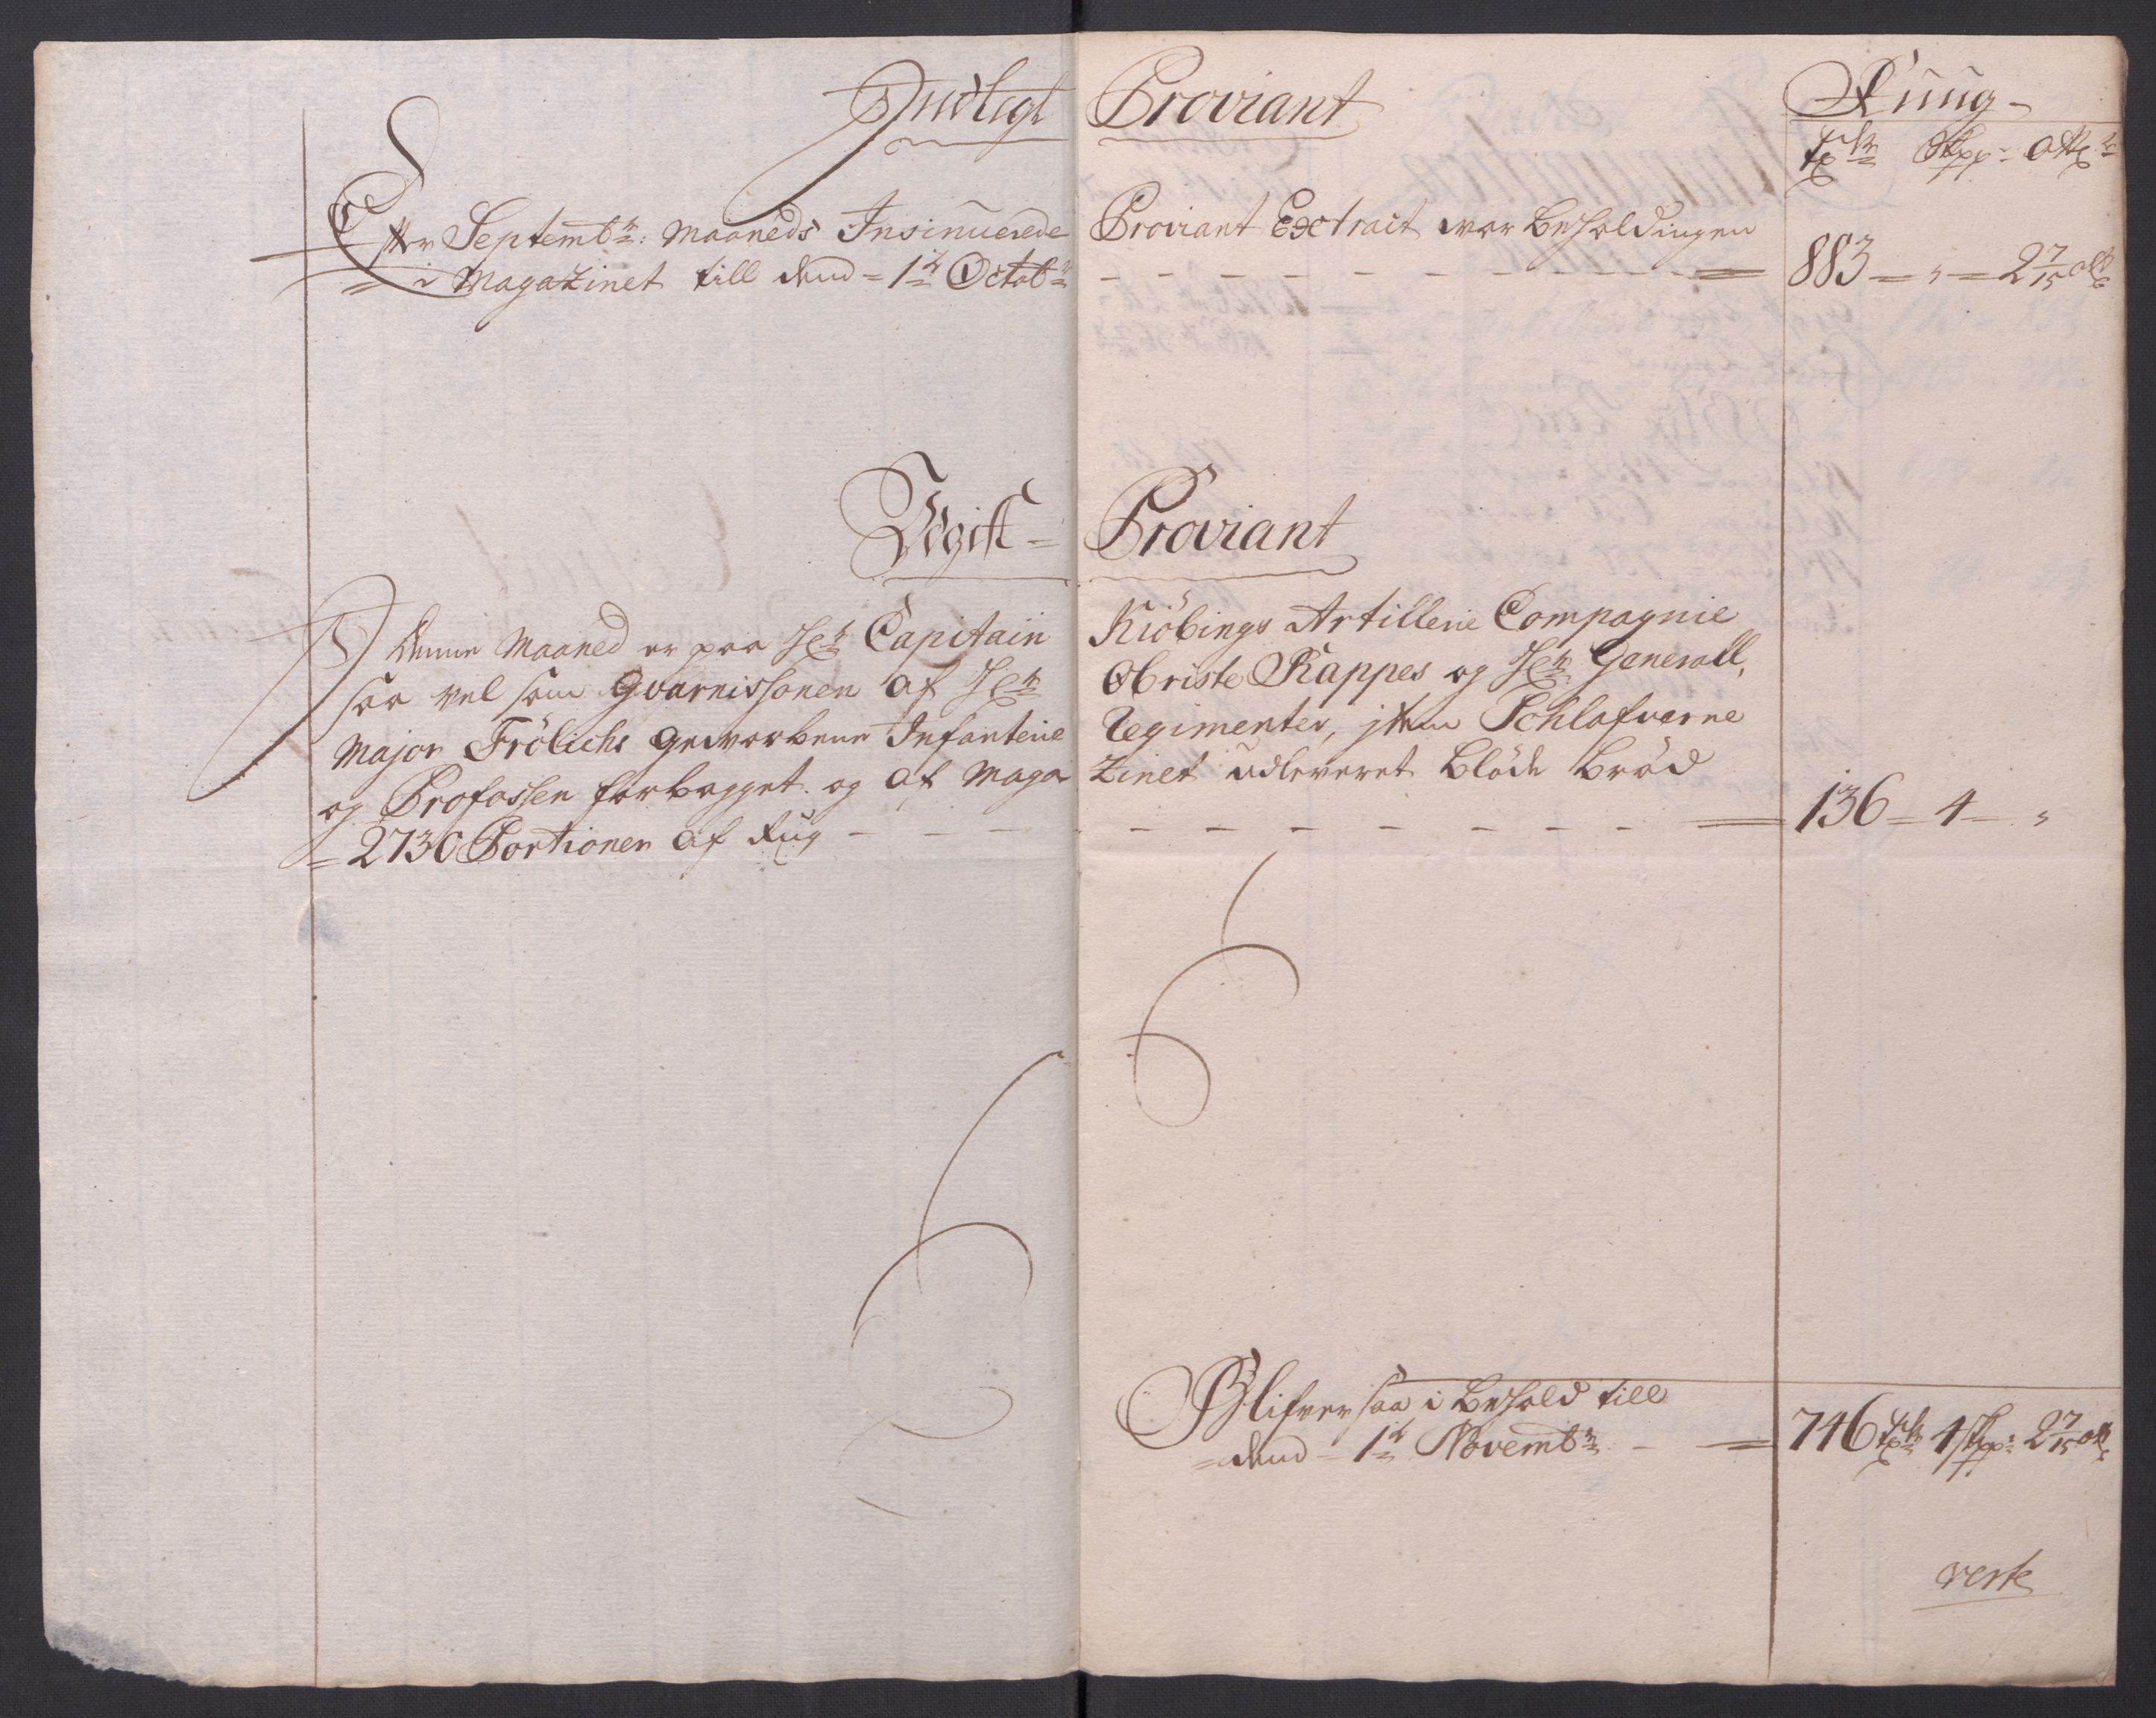 Indtegt Proviant
Ruug
Tdr Skpr Ottr
Efter Septembr: Maaneds Insinuerede Proviant Extract var beholdningen
i Magazinet till dend 1te Octobr = 883 = " = 2 7/15 Ott
Udgift = Proviant
I denne Maaned er paa Hr Capitain Kiöbings Artillerie Compagnie
saa vel som Gvarnissonen af Hr Obriste Kappes og Hr Generall,
Major Frölichs gevorbene Infanterie Regimenter, jtem Schlafverne
og Profossen forbagget og af Maga zinet udleveret blöde bröd
= 2730 Portioner af Rug = 136 = 4 = "
Blifver saa i behold till
dend 1te Novembr = 746 Tdr 4 Skpr 2 7/15 Ott
verte